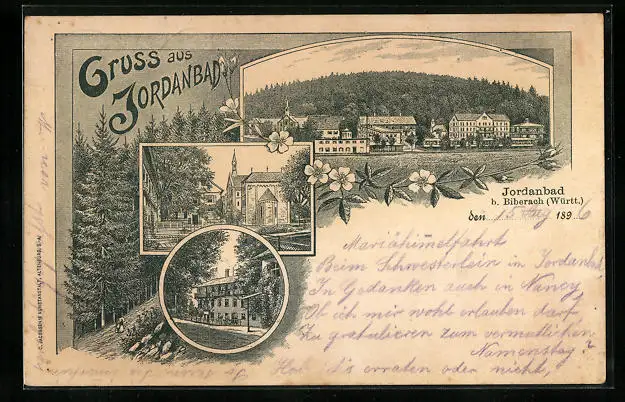 Gruss aus
Jordanbad
Jordanbad
b. Biberach (Württ.)
den 15 Aug 1896
Mariähimelfahrt
Beim Schwesterlein in Jordanbad
In Gedanken auch in Nancy
Ob ich mir wohl erlauben darf,
Zu gratulieren zum vermutlichen
Namenstag?
Hab I's erraten oder nicht,